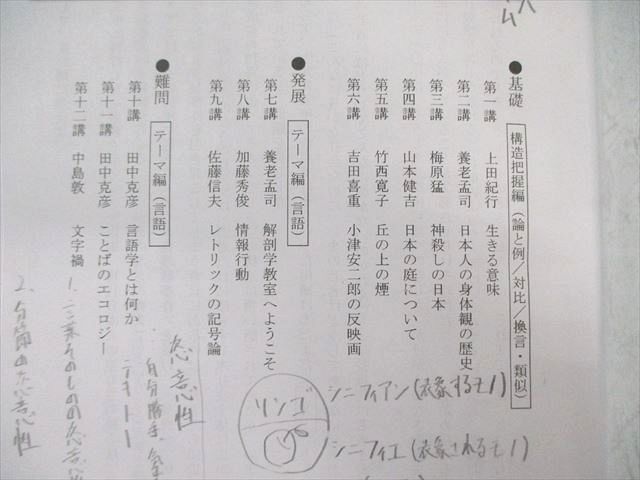 ●基礎 構造把握編（論と例／対比／換言・類似）
第一講 上田紀行 生きる意味
第二講 養老孟司 日本人の身体観の歴史
第三講 梅原猛 神殺しの日本
第四講 山本健吉 日本の庭について
第五講 竹西寛子 丘の上の煙
第六講 吉田喜重 小津安二郎の反映画
●発展 テーマ編（言語）
第七講 養老孟司 解剖学教室へようこそ
第八講 加藤秀俊 情報行動
第九講 佐藤信夫 レトリックの記号論
●難問 テーマ編（言語）
第十講 田中克彦 言語学とは何か
第十一講 田中克彦 ことばのエコロジー
第十二講 中島敦 文字禍
シニフィアン（表象するモノ）
シニフィエ（表象されるモノ）
リンゴ
恣意性
自分勝手
1. 言葉そのものの恣意
2. 分節の恣意性